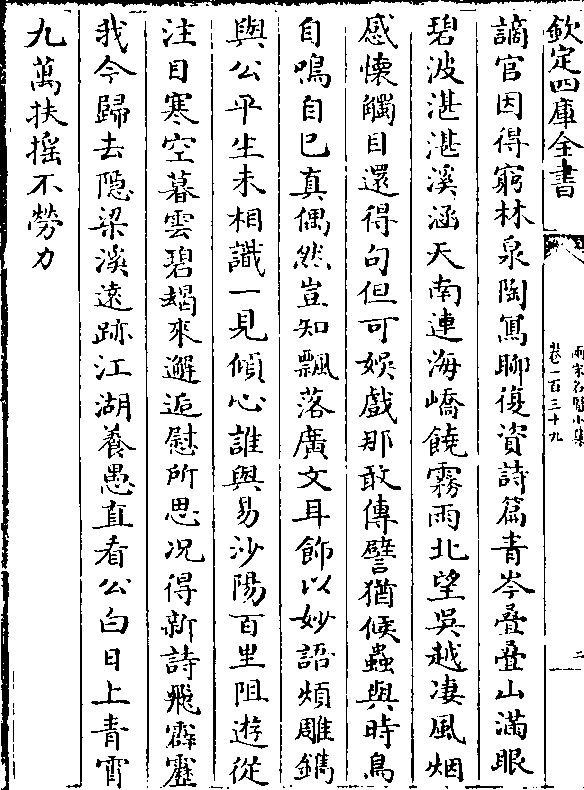 欽定四庫全書
兩宋名賢小集
卷一百三十九
二
謫官因得窮林泉陶寫聊復資詩篇青岑疊疊山滿眼
碧波湛湛溪涵天南連海嶠饒霧雨北望吳越凄風烟
感懷觸目還得句但可娛戲那敢傳譬猶候蟲與時鳥
自鳴自已真偶然豈知飄落廣文耳飾以妙語煩雕鐫
與公平生未相識一見傾心誰與易沙陽百里阻遊從
注目寒空暮雲碧朅來邂逅慰所思况得新詩飛霹靂
我今歸去隱梁溪遠跡江湖養愚直看公白日上青霄
九萬扶摇不勞力